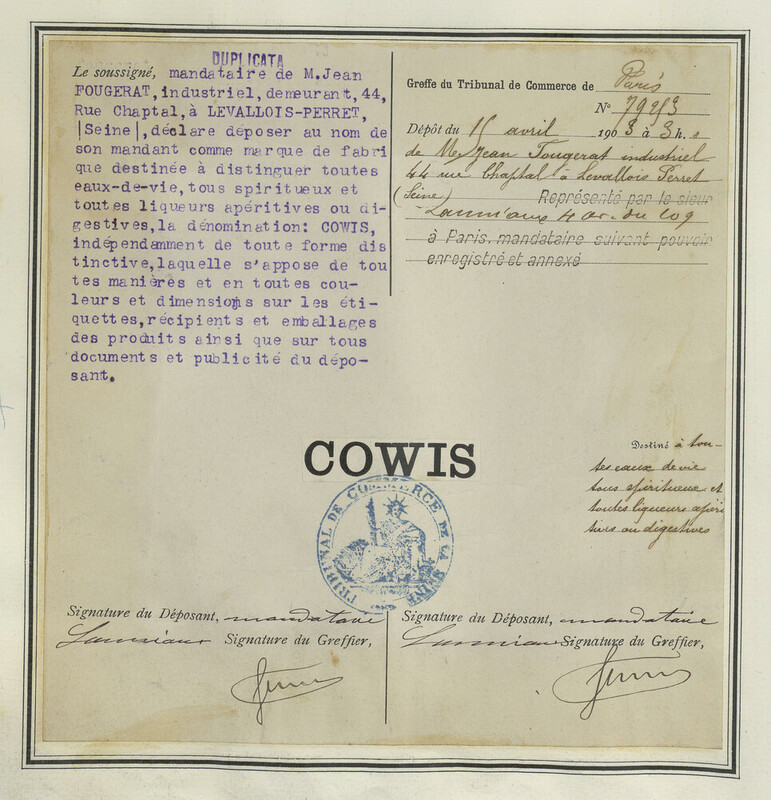 DUPLICATA
Le soussigné, mandataire de M.Jean
FOUGERAT, industriel, demeurant, 44,
Rue Chaptal, à LEVALLOIS-PERRET,
|Seine|, déclare déposer au nom de
son mandant comme marque de fabri
que destinée à distinguer toutes
eaux-de-vie, tous spiritueux et
toutes liqueurs apéritives ou di-
gestives, la dénomination: COWIS,
indépendamment de toute forme dis
tinctive, laquelle s'appose de tou
tes manières et en toutes cou-
leurs et dimensions sur les éti-
quettes, récipients et emballages
des produits ainsi que sur tous
documents et publicité du dépo-
sant.
Greffe du Tribunal de Commerce de Paris
N° 7993
Dépôt du 15 avril 1903 à 3h. s
de M. Jean Fougerat industriel
44 rue Chaptal à Levallois Perret
(Seine) Représenté par le sieur
4 
à Paris, mandataire suivant pouvoir
enregistré et annexé
COWIS
Destiné à tou-
tes eaux de vie
tous spiritueux et
toutes liqueurs apéri
tives ou digestives
TRIBUNAL DE COMMERCE DE LA SEINE
Signature du Déposant, mandataire
Signature du Greffier,
Signature du Déposant, mandataire
Signature du Greffier,